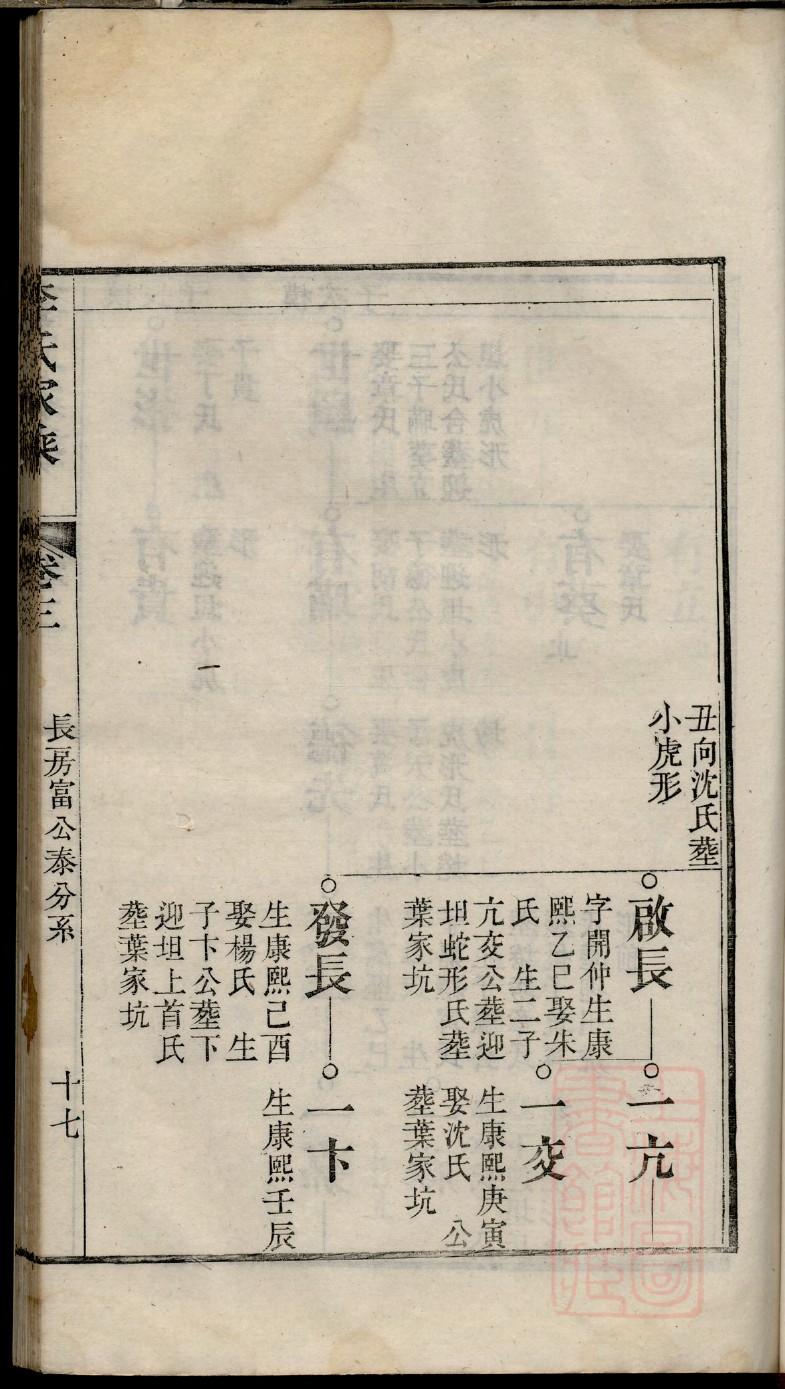 丑向沈氏塟
小虎形
啟長
字開仲生康
熙乙巳娶朱
氏 生二子
亢交公塟迎
坦蛇形氏塟
葉家坑
一亢
一交
生康熙庚寅
娶沈氏 公
塟葉家坑
發長
生康熙己酉
娶楊氏 生
子卞公塟下
迎坦上首氏
塟葉家坑
一卞
生康熙壬辰
李氏家乘
卷三
長房富公泰分系
十七